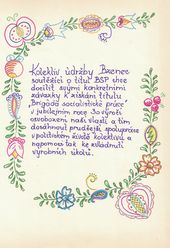 Kolektiv údržby Bzenec
soutěžící o titul BSP chce
docílit svými konkretními
závazky k získání titulu
"Brigáda socialistické práce"
v jubilejním roce 30. výročí
osvobození naší vlasti a tím
dosáhnout prudší spolupráce
v politickém životě kolektivu a
napomoci tak ke zvládnutí
výrobních úkolů.